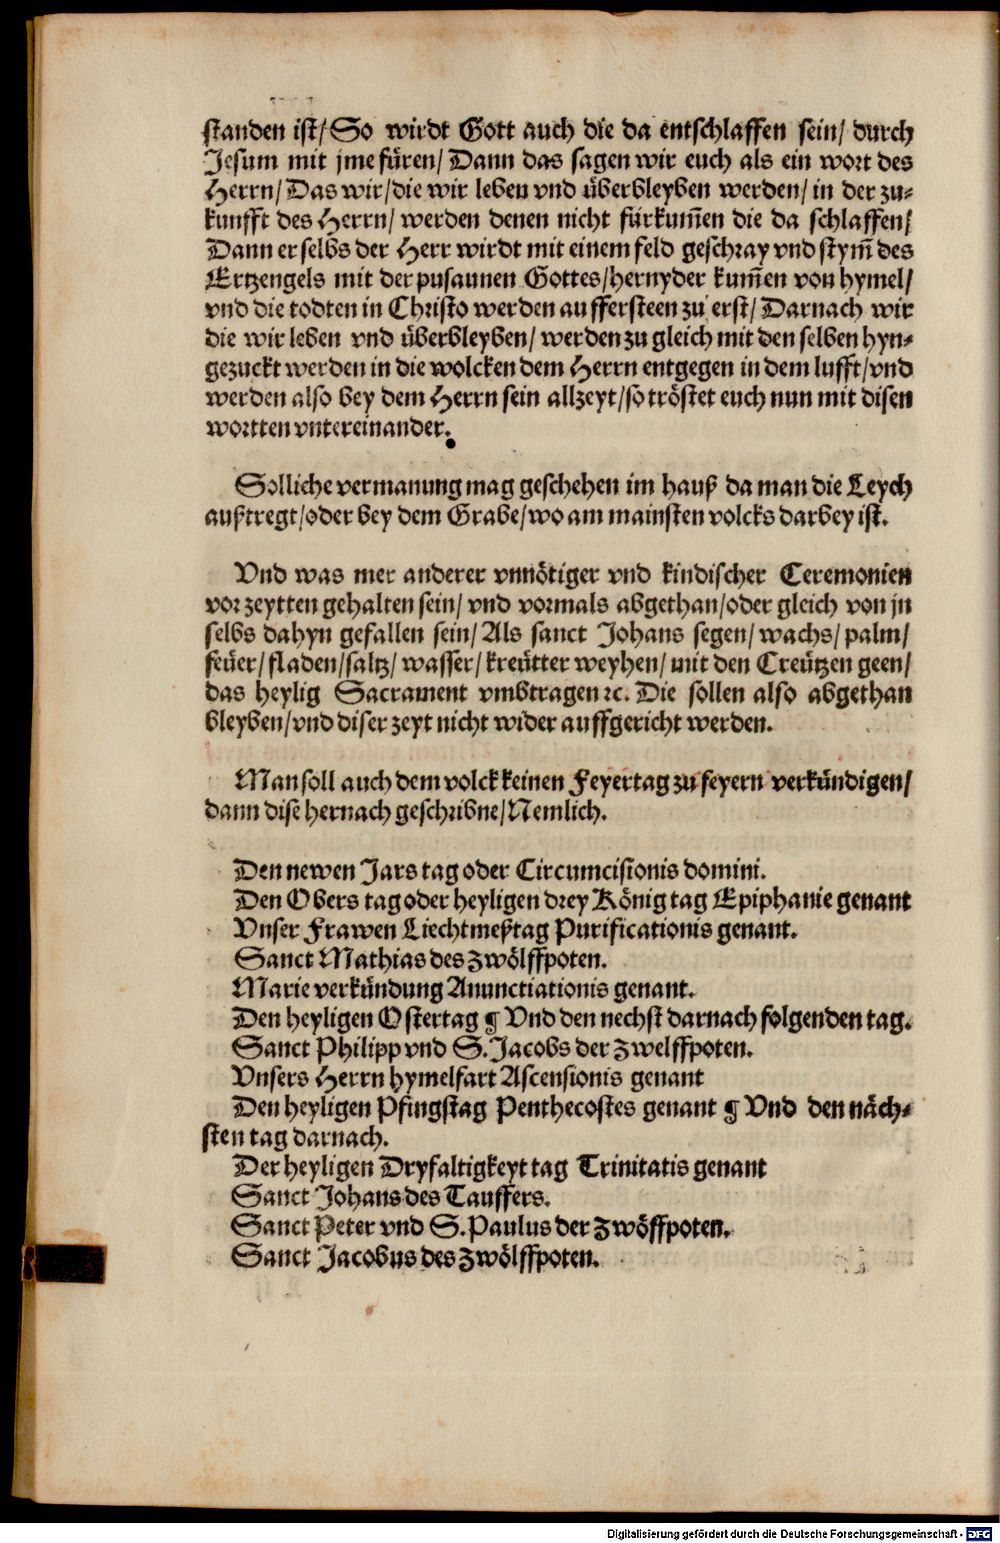 standen ist/ So wirdt Gott auch die da entschlaffen sein/ durch
Jesum mit jme füren/ Dann das sagen wir euch als ein wort des
Herrn/ Das wir/ die wir leben vnd überbleyben werden/ in der zu-
kunfft des Herrn/ werden denen nicht fürkum̄en die da schlaffen/
Dann er selbs der Herr wirdt mit einem feld geschray vnd stym̄ des
Ertzengels mit der pusaunen Gottes/ hernyder kum̄en von hymel/
vnd die todten in Christo werden auffersteen zu erst/ Darnach wir
die wir leben vnd überbleyben/ werden zu gleich mit den selben hyn-
gezuckt werden in die wolcken dem Herrn entgegen in dem lufft/ vnd
werden also bey dem Herrn sein allzeyt/ so tröstet euch nun mit disen
wortten vntereinander.
Solliche vermanung mag geschehen im hauß da man die Leych
außtregt/ oder bey dem Grabe/ wo am mainsten volcks darbey ist.
Vnd was mer anderer vnnötiger vnd kindischer Ceremonien
vor zeytten gehalten sein/ vnd vormals abgethan/ oder gleich von jn
selbs dahyn gefallen sein/ Als sanct Johans segen/ wachs/ palm/
feüer/ fladen/ saltz/ wasser/ kreütter weyhen/ mit den Creützen geen/
das heylig Sacrament vmbtragen ꝛc. Die sollen also abgethan
bleyben/ vnd diser zeyt nicht wider auffgericht werden.
Man soll auch dem volck keinen Feyertag zu feyern verkündigen/
dann dise hernach geschribne/ Nemlich.
Den newen Jars tag oder Circumcisionis domini.
Den Obers tag oder heyligen drey König tag Epiphanie genant
Vnser Frawen Liechtmeßtag Purificationis genant.
Sanct Mathias des Zwölffpoten.
Marie verkündung Anunctiationis genant.
Den heyligen Ostertag ¶ Vnd den nechst darnach folgenden tag.
Sanct Philipp vnd S. Jacobs der Zwelffpoten.
Vnsers Herrn hymelfart Ascensionis genant
Den heyligen Pfingstag Penthecostes genant ¶ Vnd den näch-
sten tag darnach.
Der heyligen Dryfaltigkeyt tag Trinitatis genant
Sanct Johans des Tauffers.
Sanct Peter vnd S. Paulus der Zwöffpoten.
Sanct Jacobus des Zwölffpoten.
Digitalisierung gefördert durch die Deutsche Forschungsgemeinschaft - DFG